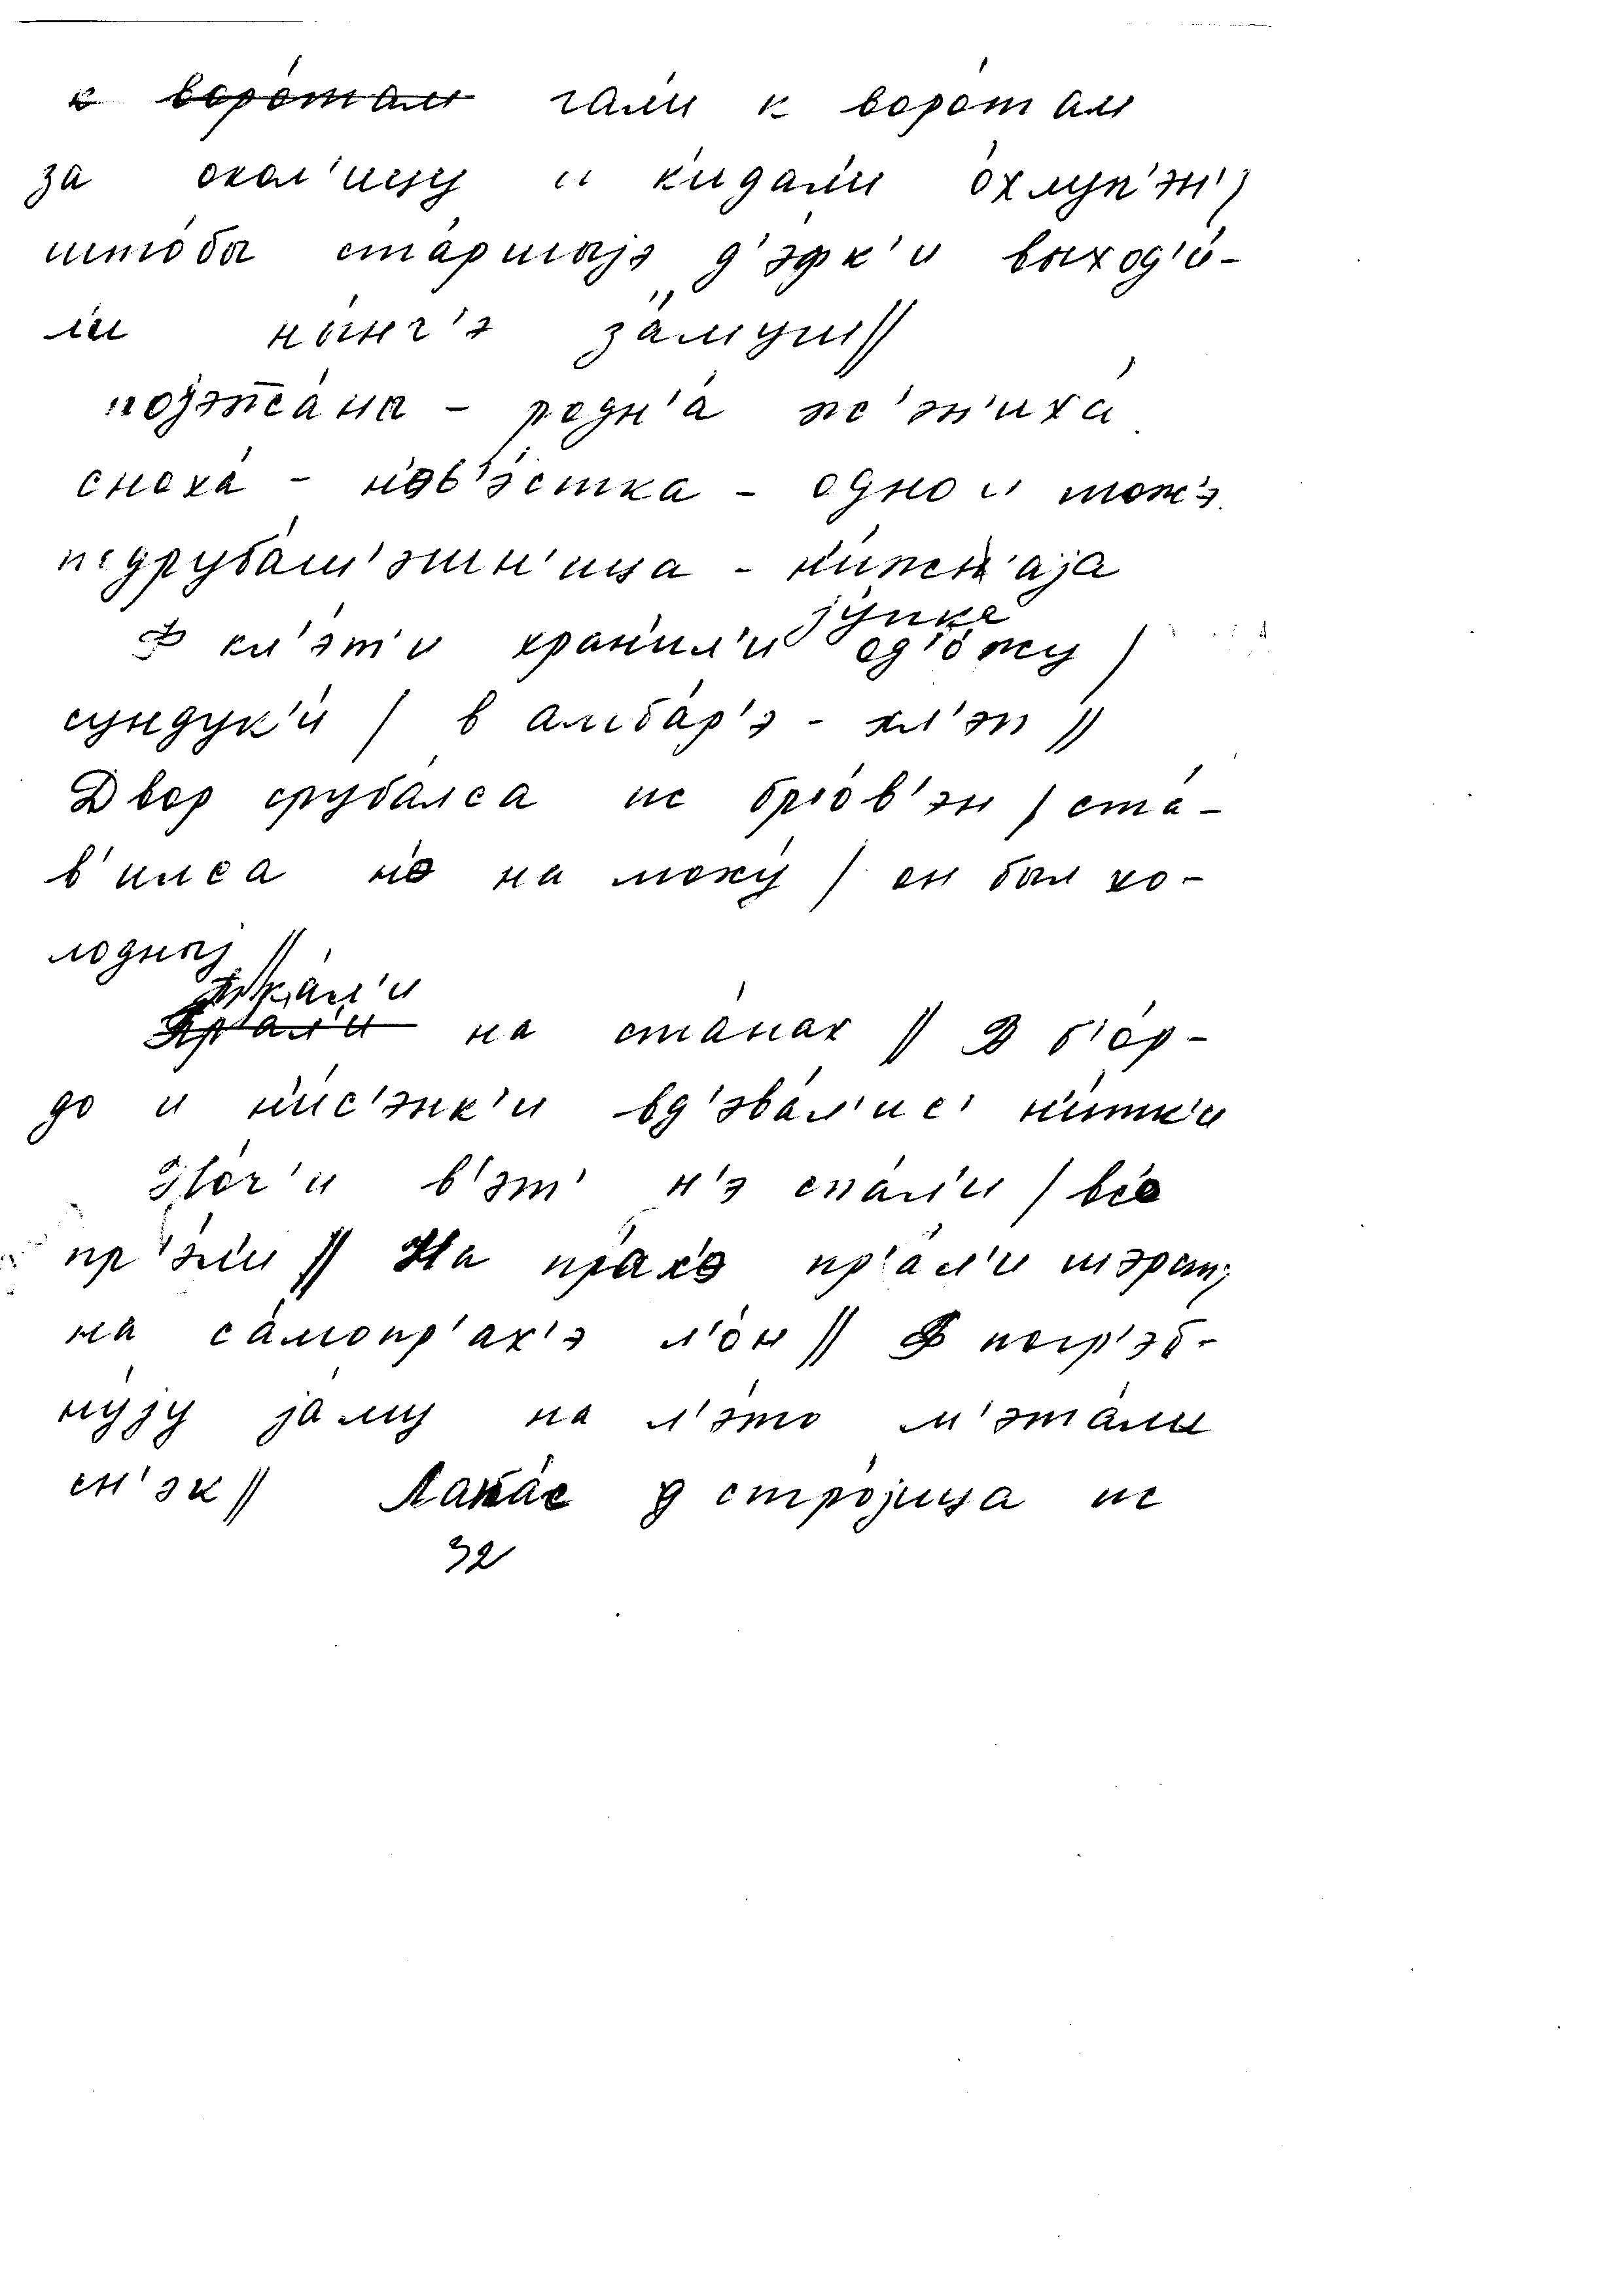 к воро́там гал'и к воро́там
за окол'ицу и к'идал'и о́хлуп'эн' /
што́бы ста́ршыjэ д'эфк'и выход'и́-
л'и ны́нч'э за́муш //
поjэжа́ны - родн'а́ ж'эн'иха́
сноха́ - н'эв'э́стка - одно и тож'э.
подруба́ш'эшн'ица - н'ижн'аjа
jу́пка
Ф кл'э́т'и хран'ил'и од'о́жу /
сундук'и́ / в амба́р'э - хл'эп //
Двор сруба́лса ис бр'о́в'эн / ста́-
в'илса на моху́ / он был хо-
лодныj //
Тка́л'и
Пр'ал'и на ста́нах // В б'о́р-
до и н'и́с'энк'и вд'эва́л'ис' н'и́тк'и
Но́ч'и в'эт' н'э спа́л'и / вс'о
пр'э́л'и // На пр'а́х'э пр'а́л'и шэрст'
на са́мопр'ах'э л'о́н // Ф погр'эб-
ну́jу jа́му на л'э́то м'эта́ли
сн'эк // Лапа́с стро́jица ис
32